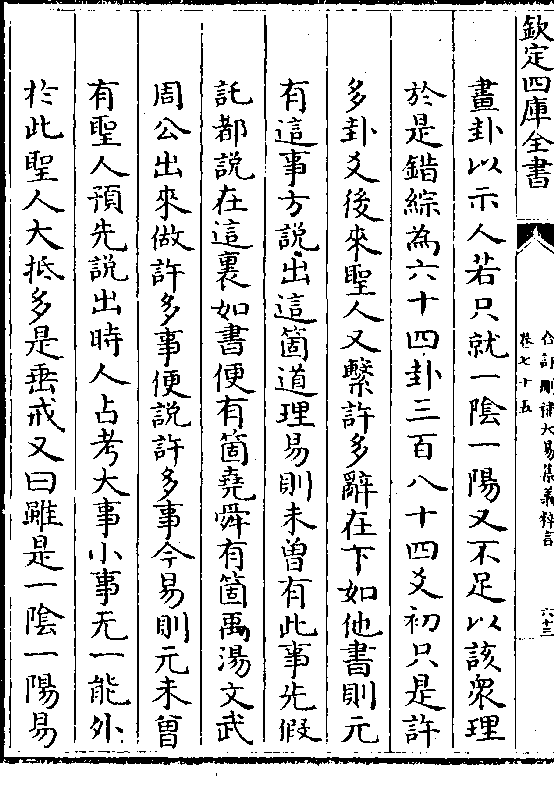 欽定四庫全書
合訂刪補大易集義粹言
卷七十五
六十三
畫卦以示人若只就一陰一陽又不足以該衆理
於是錯綜為六十四卦三百八十四爻初只是許
多卦爻後來聖人又繫許多辭在下如他書則元
有這事方説出這箇道理易則未曽有此事先假
託都説在這裏如書便有箇堯舜有箇禹湯文武
周公出來做許多事便説許多事今易則元未曽
有聖人預先説出時人占考大事小事无一能外
於此聖人大抵多是垂戒又曰雖是一陰一陽易